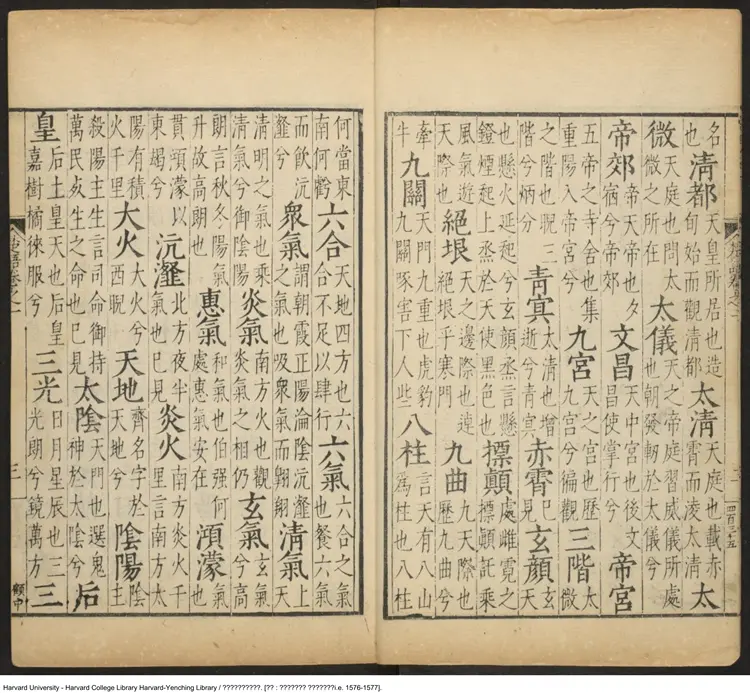 名也清都天皇所居也造旬始而觀清都太清天庭也載赤霄而凌太清太
微天庭也問太微之所在太儀天之帝庭習威儀所處也朝發軔於太儀兮
帝郊帝天帝也夕宿兮帝郊文昌天中宮也後文昌使掌行兮帝宮
五帝之寺舍也集重陽入帝宮兮九宮天之宮也歷九宮兮徧觀三階太微
之階也睨三階兮炳分青冥太清也增逝兮青冥赤霄已見玄顏玄天
也懸火延起兮玄顏烝言懸鐙煙起上烝於天使黑色也摽顛處雌霓之摽顛託乘
風氣遊天際也絕垠天之邊際也逴絕垠乎寒門九曲九天際也歷九曲兮
牽牛九關天門九重也虎豹九關啄害下人些八柱言天有八山為柱也八柱
四百三十五
何當東南何虧六合天地四方也六合不足以肆行六氣六合之氣也餐六氣
而飲沆瀣兮衆氣謂朝霞正陽淪陰沆瀣之氣也吸衆氣而翺翔清氣上天
清明之氣也乘清氣兮御陰陽炎氣南方火也觀炎氣之相仍玄氣玄氣兮高
朗言秋冬陽氣升故高朗也惠氣和氣也伯强何處惠氣安在澒濛氣也
貫澒濛以東朅兮沆瀣北方夜半氣也已見炎火南方炎火千里言南方太
陽有積火千里大火大火兮西睨天地齊名字於天地兮陰陽陰主
殺陽主生言司命御持萬民死生之命也已見太陰天門也選鬼神於太陰兮后
皇后土皇天也后皇嘉樹橘徠服兮三光日月星辰也三光朗兮鏡萬方三
三
顧中
Harvard University - Harvard College Library Harvard-Yenching Library / ??????????. [?? : ??????? ???????i.e. 1576-1577].